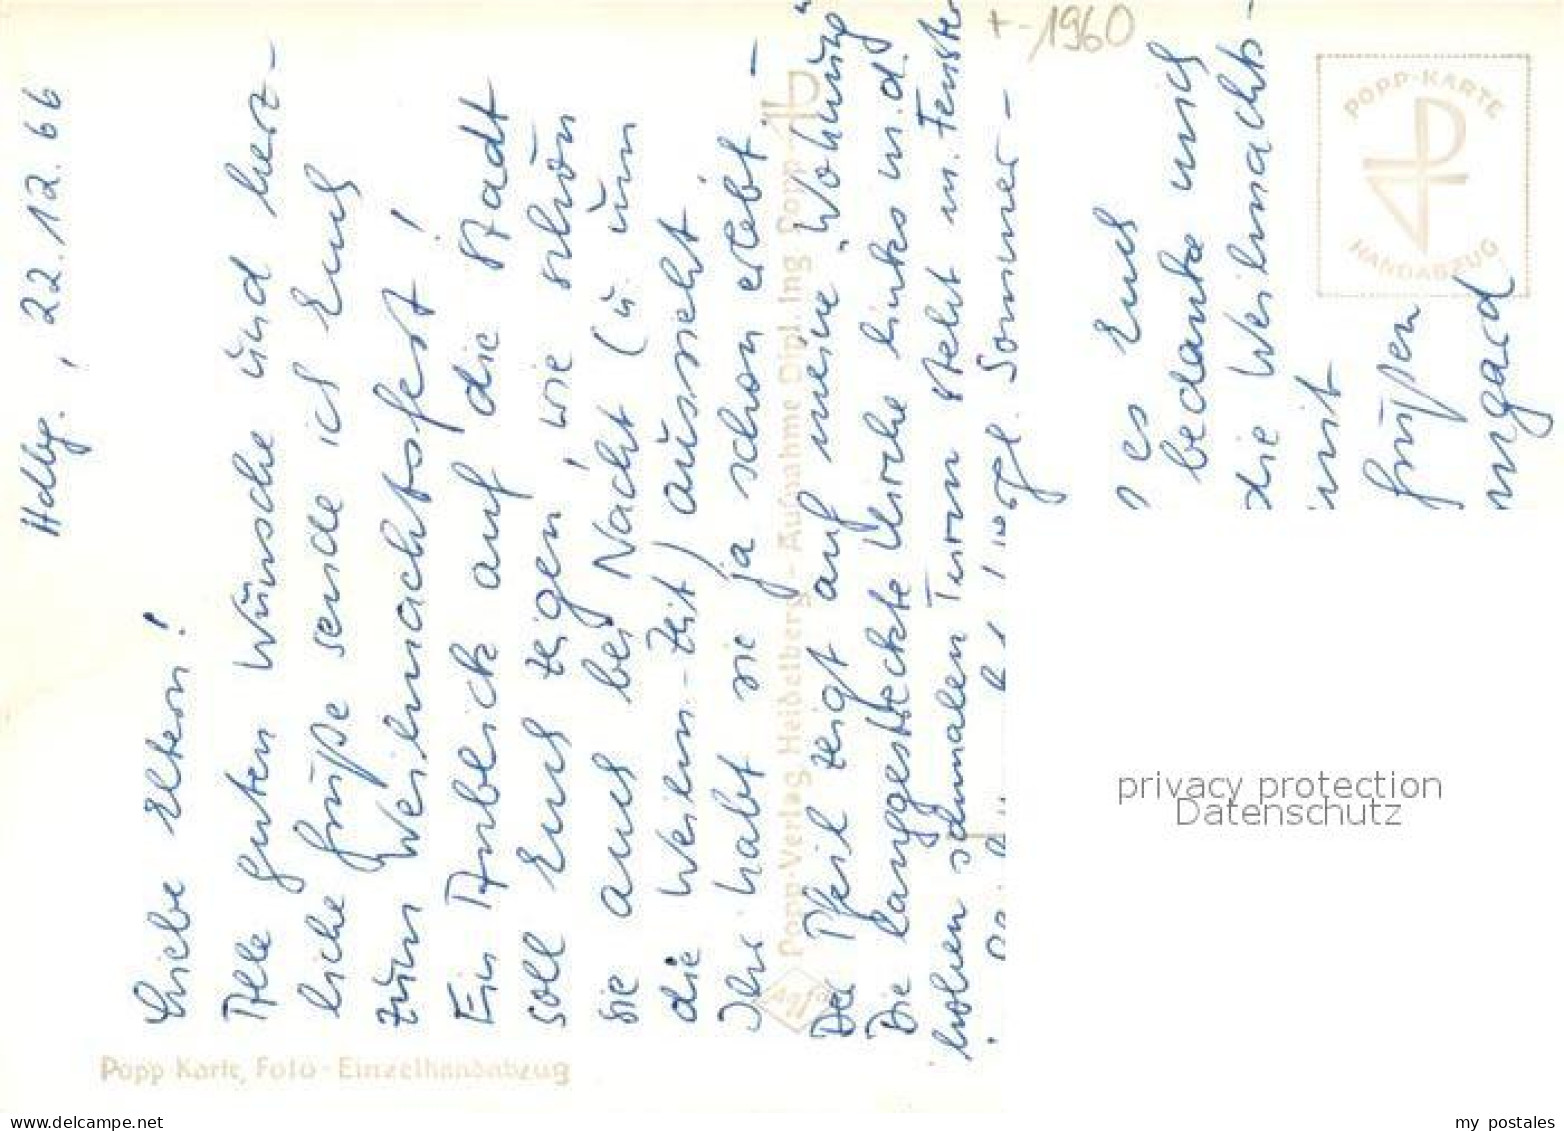 Hdbg., 22.12.66
Liebe Eltern!
Alle guten Wünsche und herz-
liche Grüße sende ich Euch
zum Weihnachtsfest!
Ein Anblick auf die Stadt
soll Euch zeigen, wie schön
sie auch bei Nacht (u. um
die Weihn.-Zeit) aussieht.
Ihr habt sie ja schon erlebt. -
Der Pfeil zeigt auf meine "Wohnung"
Die langgestreckte Kirche links m. d.
hohen schmalen Turm steht m. Fenster
gl. Sommer -
es Euch
bedanke mich
die Weihnachts-
mit
Grüßen
mgard
+-1960
POPP-KARTE
HANDABZUG
Popp-Verlag Heidelberg - Aufnahme Dipl. Ing Popp
Agfa
Popp Karte, Foto-Einzelhandabzug
privacy protection
Datenschutz
www.delcampe.net
my postales